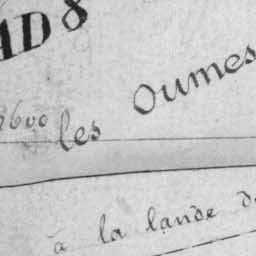 AD8
2600
les Oumes
à la lande de